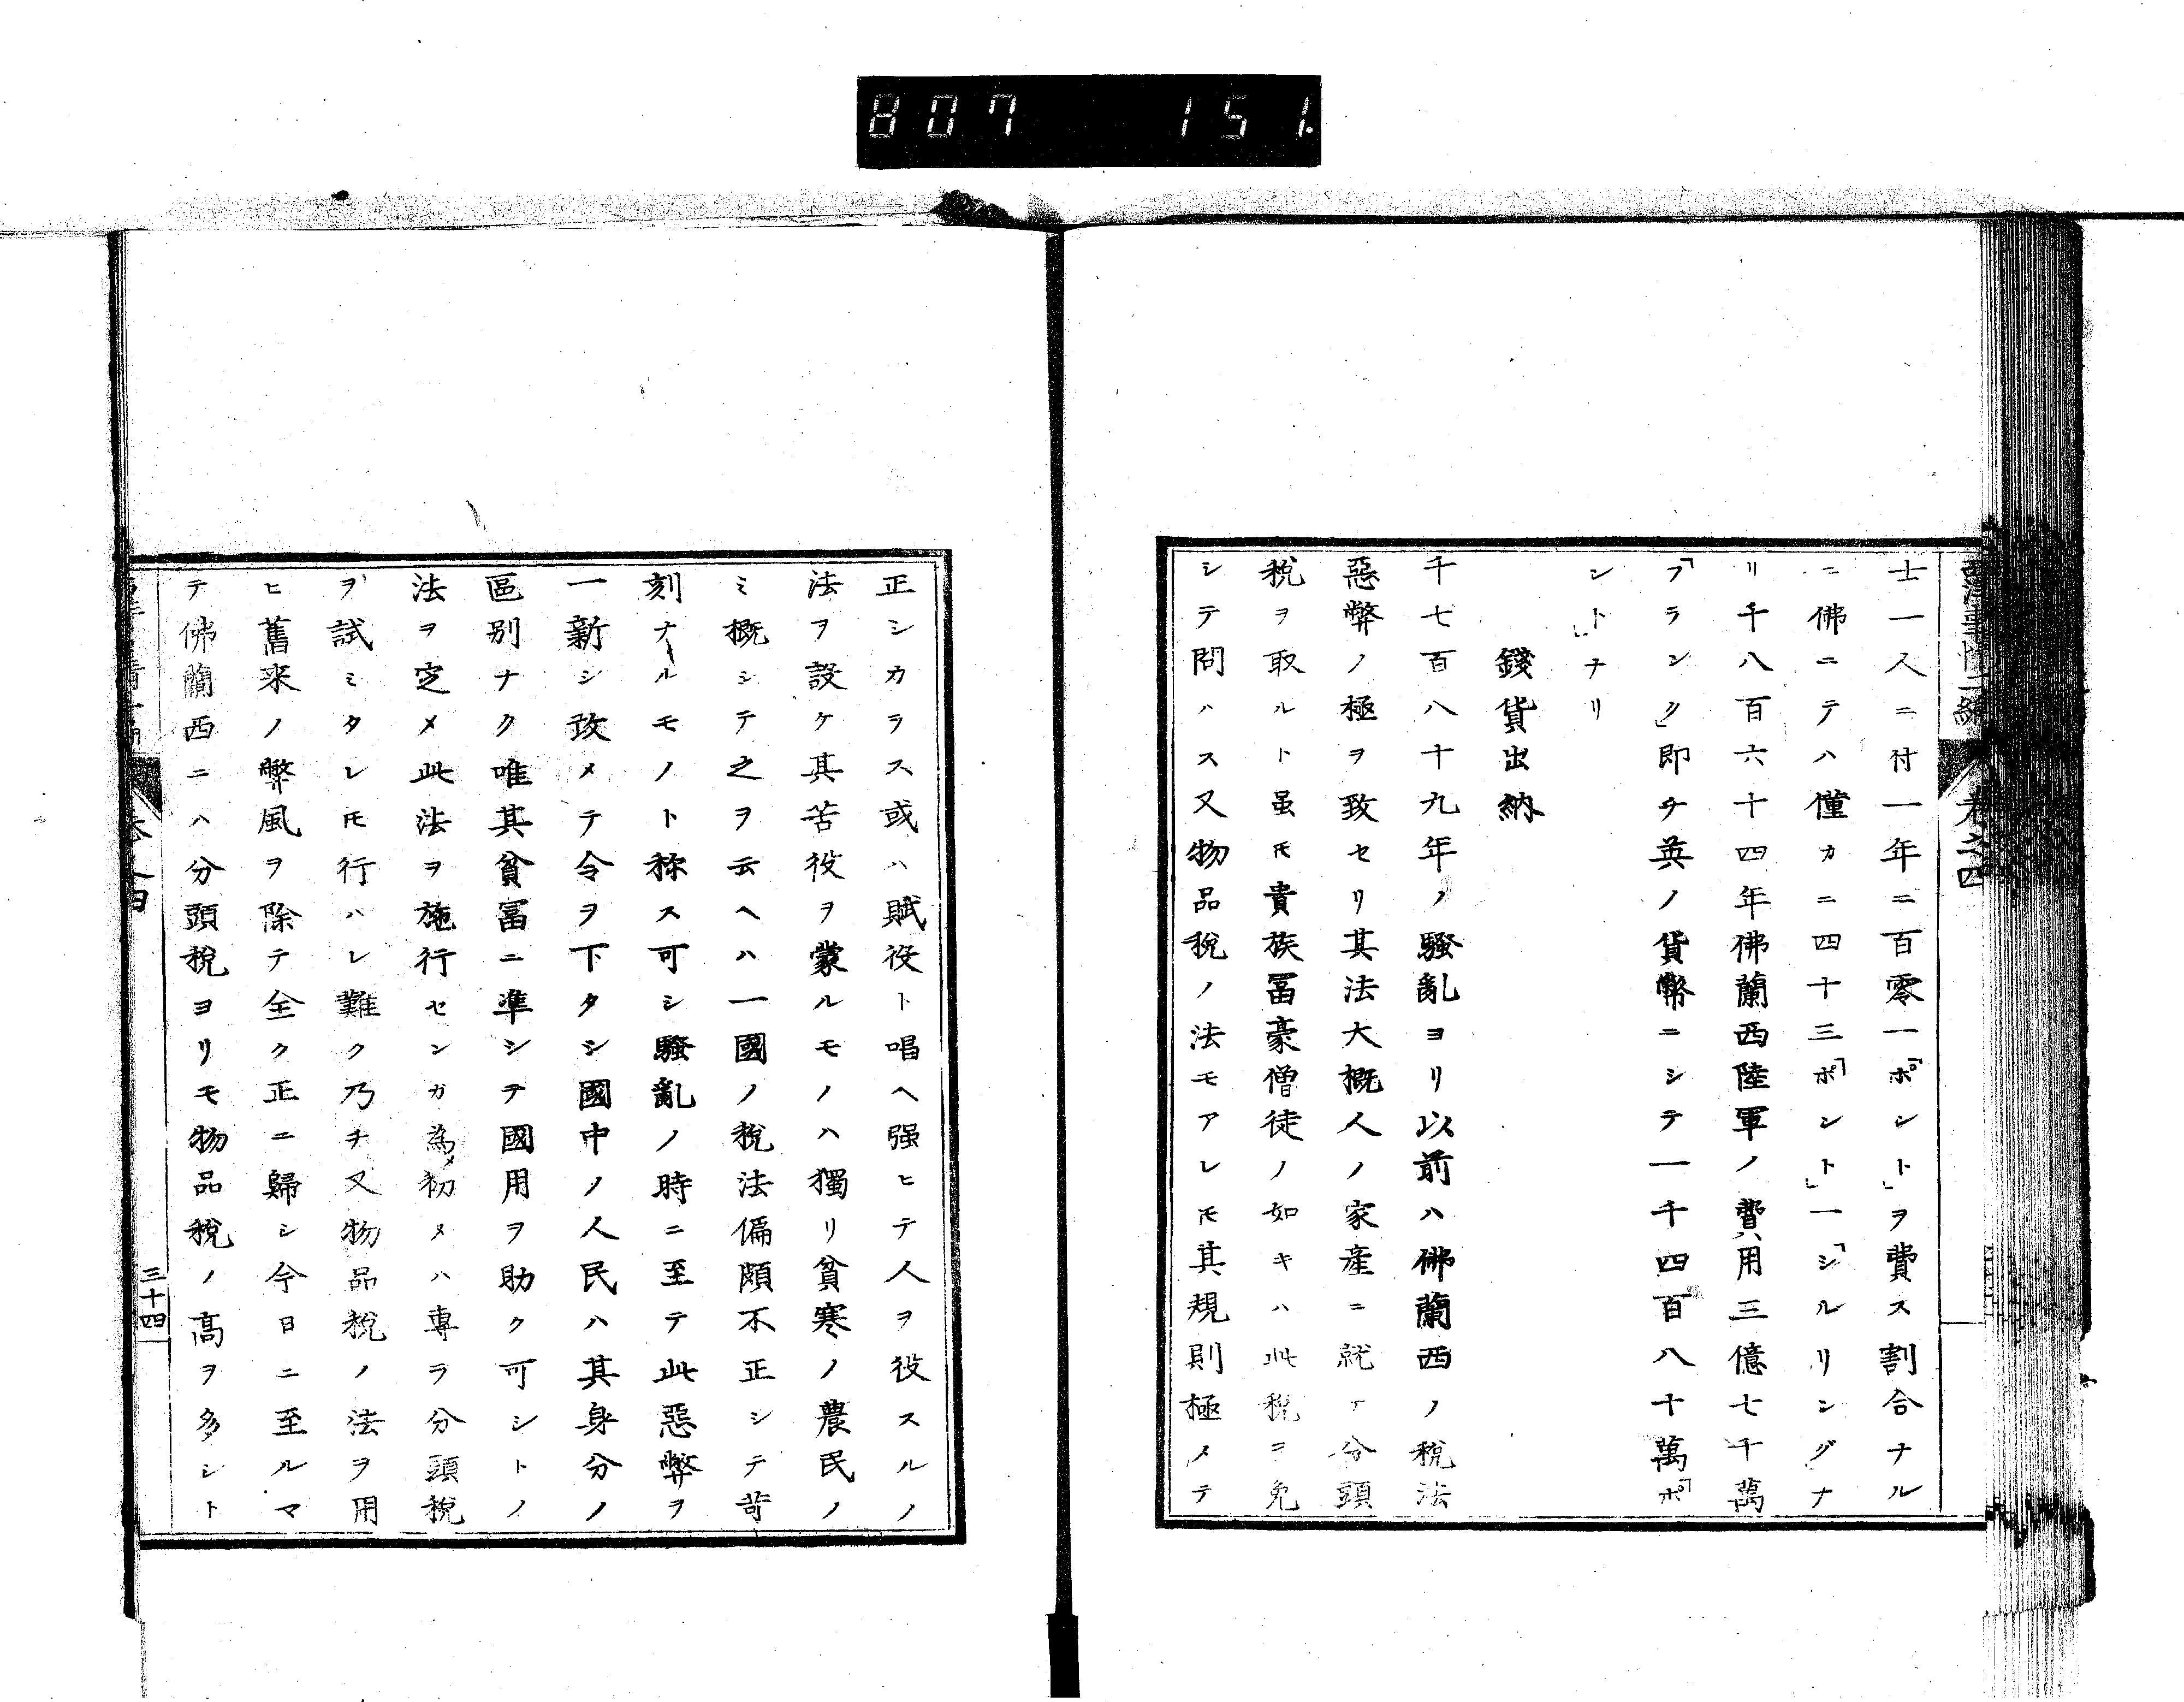 807 151
西洋事情二編 卷之四
士一人ニ付一年ニ百零一「ポント」ヲ費ス割合ナル
ニ佛ニテハ僅カニ四十三「ポント」一「シルリングナ
リ千八百六十四年佛蘭西陸軍ノ費用三億七千萬
「フランク」即チ英ノ貨幣ニシテ一千四百八十萬「ポ
ント」ナリ
錢貨出納
千七百八十九年ノ騷亂ヨリ以前ハ佛蘭西ノ稅法
惡弊ノ極ヲ致セリ其法大概人ノ家産ニ就テ分頭
稅ヲ取ルト虽𪜈貴族冨豪僧徒ノ如キハ此稅ヲ免
シテ問ハス又物品稅ノ法モアレ𪜈其規則極メテ
正シカラス或ハ賦役ト唱ヘ强ヒテ人ヲ役スルノ
法ヲ設ケ其苦役ヲ蒙ルモノハ獨リ貧寒ノ農民ノ
ミ概シテ之ヲ云ヘハ一國ノ稅法偏頗不正シテ苛
刻ナルモノト称ス可シ騷亂ノ時ニ至テ此惡弊ヲ
一新シ改メテ令ヲ下タシ國中ノ人民ハ其身分ノ
區别ナク唯其貧冨ニ準シテ國用ヲ助ク可シトノ
法ヲ定メ此法ヲ施行センガ為メ初メハ專ラ分頭稅
ヲ試ミタレ𪜈行ハレ難ク乃チ又物品稅ノ法ヲ用
ヒ舊来ノ弊風ヲ除テ全ク正ニ歸シ今日ニ至ルマ
テ佛蘭西ニハ分頭稅ヨリモ物品稅ノ高ヲ多シト
卷之四
三十四